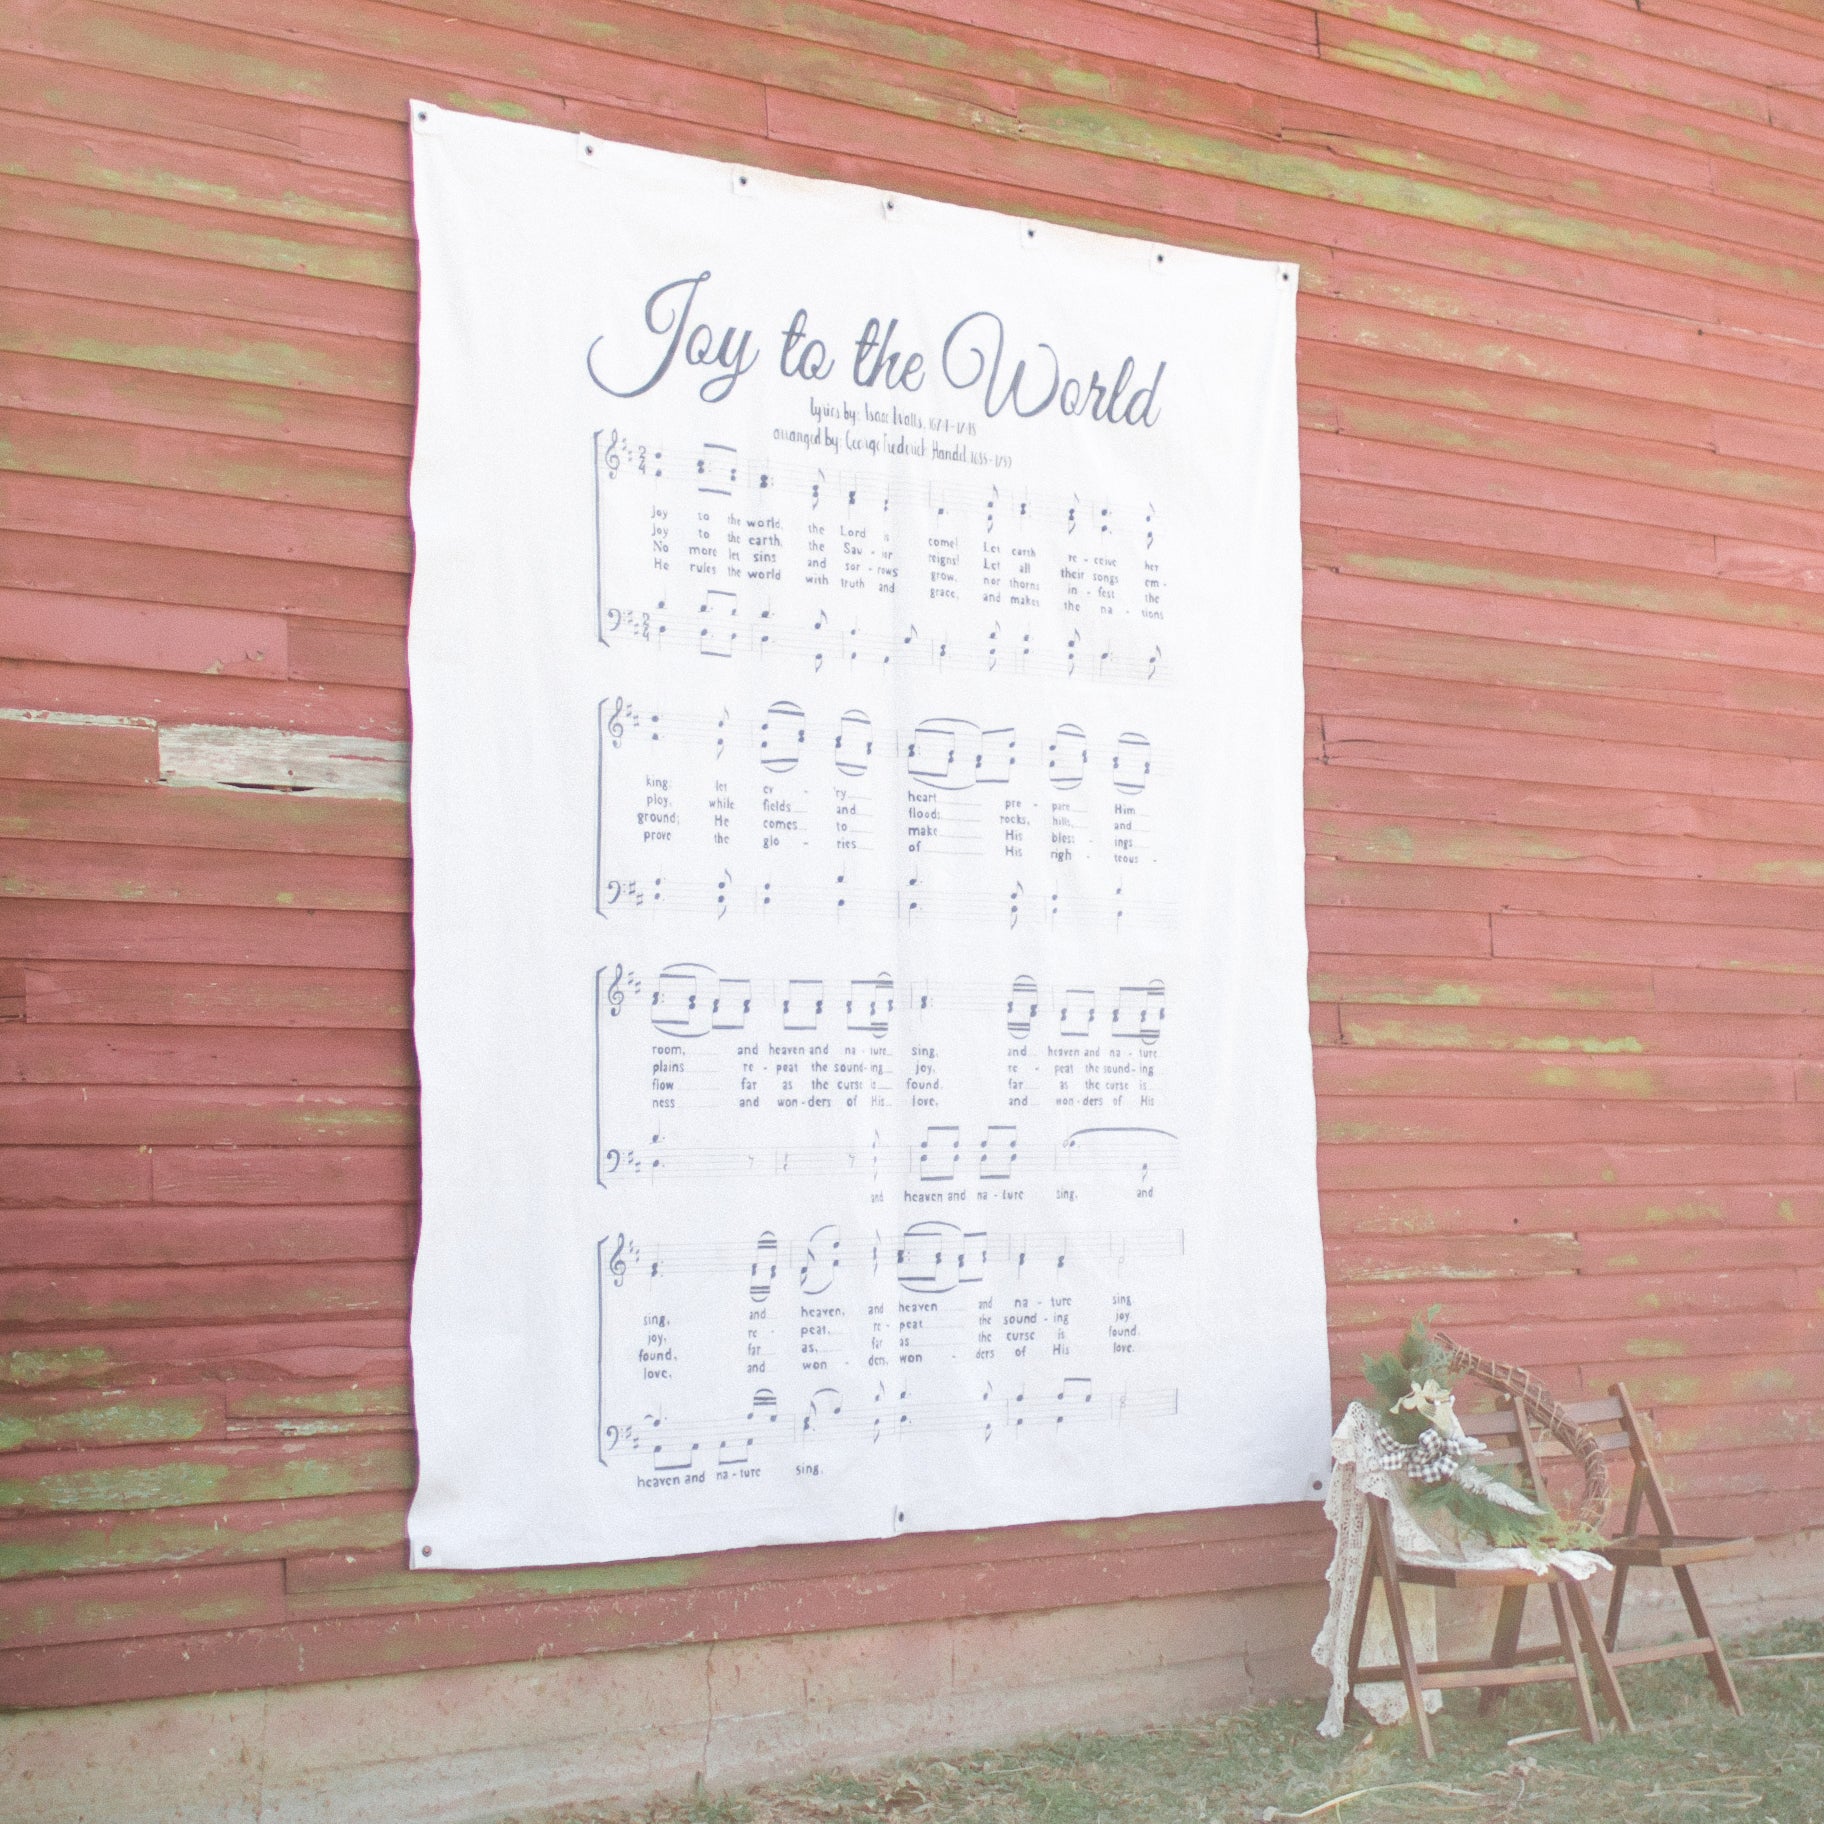 Joy to the World
lyrics by: Isaac Watts, 1674-1748
arranged by: George Frederick Handel 1685-1759
2
4
Joy to the world, the Lord is come! Let earth re - ceive her
Joy to the earth, the Sav - ior reigns! Let all their songs em -
No more let sins and sor - rows grow, nor thorns in - fest the
He rules the world with truth and grace, and makes the na - tions
2
4
king; let ev - 'ry heart pre - pare Him
ploy, while fields and flood; rocks, hills, and
ground; He comes to make His bless - ings
prove the glo - ries of His righ - teous -
room, and heaven and na - ture sing, and heaven and na - ture
plains re - peat the sound - ing joy, re - peat the sound - ing
flow far as the curse is found. far as the curse is
ness and won - ders of His love, and won - ders of His
and heaven and na - ture sing, and
sing, and heaven, and heaven and na - ture sing
joy, re - peat, re - peat the sound - ing joy.
found, far as, far as the curse is found.
love, and won - ders, won - ders of His love.
heaven and na - ture sing,